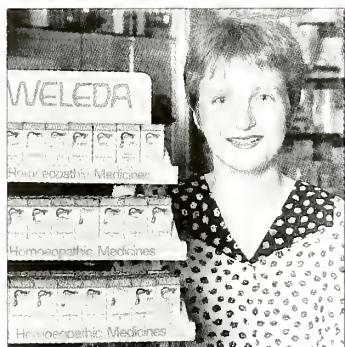 WELEDA
Homoeopathic Medicines
Homoeopathic Medicines
Homoeopathic Medicines